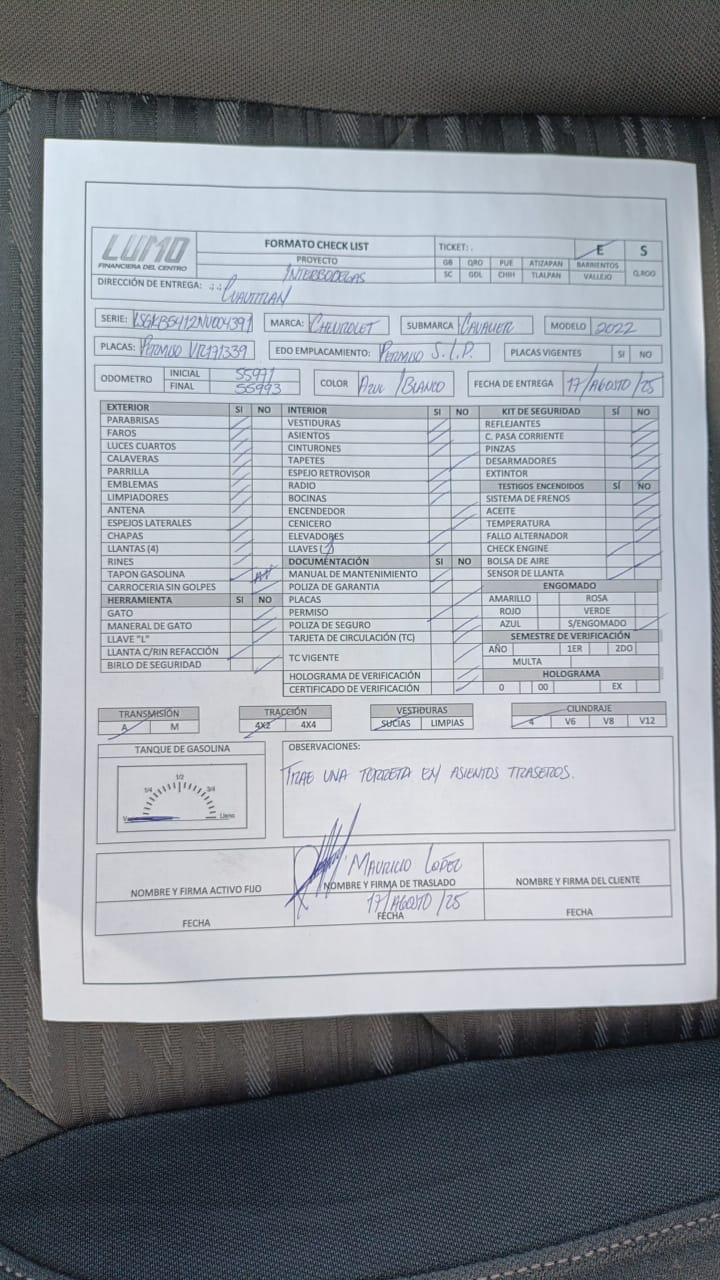 LUMO
FINANCIERA DEL CENTRO
FORMATO CHECK LIST
TICKET: .
E S
PROYECTO
INTERBODEGAS
GB QRO PUE ATIZAPAN BARRIENTOS Q.ROO
SC GDL CHIH TLALPAN VALLEJO
DIRECCIÓN DE ENTREGA: CUAUTITLAN
SERIE: MARCA: CHEVROLET SUBMARCA CAVALIER MODELO 2022
PLACAS: PERMISO EDO EMPLACAMIENTO: PERMISO S.L.P. PLACAS VIGENTES SI NO
ODOMETRO INICIAL 55971
FINAL 55993
COLOR AZUL / BLANCO FECHA DE ENTREGA 17/AGOSTO/25
EXTERIOR SI NO INTERIOR SI NO KIT DE SEGURIDAD SÍ NO
PARABRISAS VESTIDURAS REFLEJANTES
FAROS ASIENTOS C. PASA CORRIENTE
LUCES CUARTOS CINTURONES PINZAS
CALAVERAS TAPETES DESARMADORES
PARRILLA ESPEJO RETROVISOR EXTINTOR
EMBLEMAS RADIO TESTIGOS ENCENDIDOS SÍ NO
LIMPIADORES BOCINAS SISTEMA DE FRENOS
ANTENA ENCENDEDOR ACEITE
ESPEJOS LATERALES CENICERO TEMPERATURA
CHAPAS ELEVADORES FALLO ALTERNADOR
LLANTAS (4) LLAVES (1) CHECK ENGINE
RINES DOCUMENTACIÓN SI NO BOLSA DE AIRE
TAPON GASOLINA MANUAL DE MANTENIMIENTO SENSOR DE LLANTA
CARROCERIA SIN GOLPES POLIZA DE GARANTIA ENGOMADO
HERRAMIENTA SI NO PLACAS AMARILLO ROSA
GATO PERMISO ROJO VERDE
MANERAL DE GATO POLIZA DE SEGURO AZUL S/ENGOMADO
LLAVE "L" TARJETA DE CIRCULACIÓN (TC) SEMESTRE DE VERIFICACIÓN
LLANTA C/RIN REFACCIÓN TC VIGENTE AÑO 1ER 2DO
BIRLO DE SEGURIDAD MULTA
HOLOGRAMA DE VERIFICACIÓN HOLOGRAMA
CERTIFICADO DE VERIFICACIÓN 0 00 EX
TRANSMISIÓN TRACCIÓN VESTIDURAS CILINDRAJE
A M 4X2 4X4 SUCIAS LIMPIAS 4 V6 V8 V12
TANQUE DE GASOLINA
1/4 1/2 3/4
Lleno
OBSERVACIONES:
TRAE UNA TORRETA EN ASIENTOS TRASEROS.
MAURICIO LOPEZ
NOMBRE Y FIRMA ACTIVO FIJO NOMBRE Y FIRMA DE TRASLADO NOMBRE Y FIRMA DEL CLIENTE
17/AGOSTO/25
FECHA FECHA FECHA